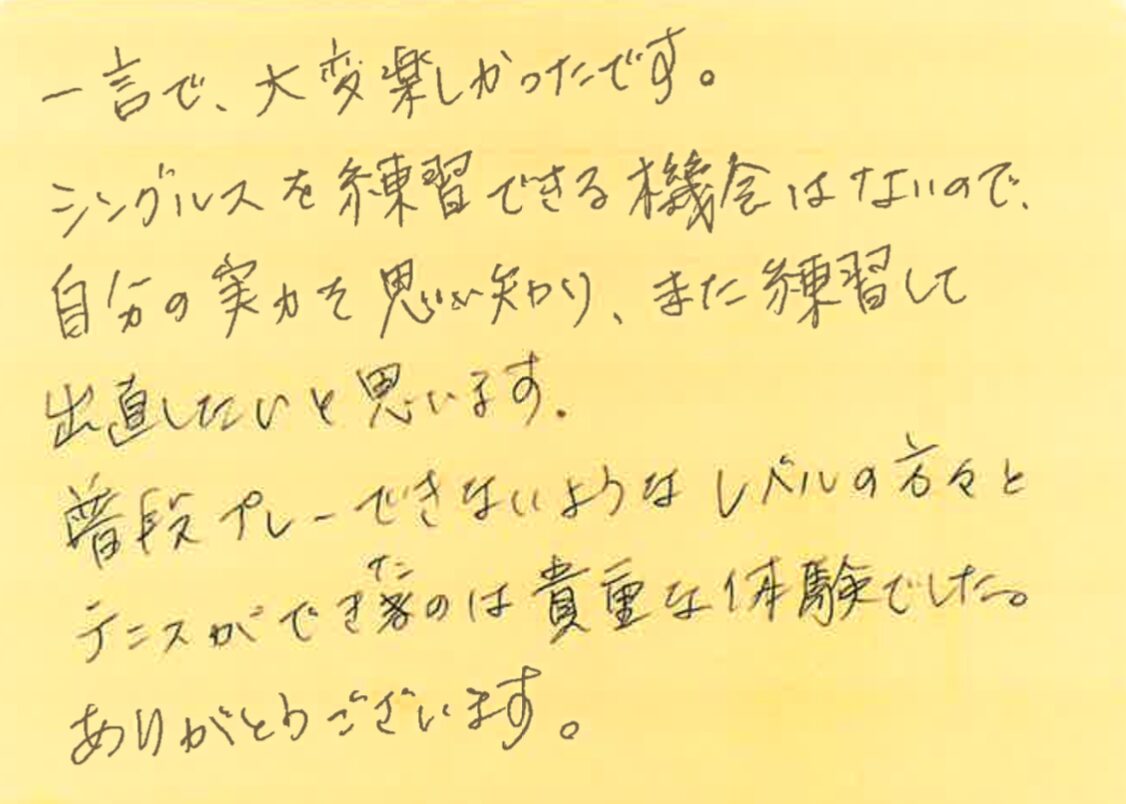 一言で、大変楽しかったです。
シングルスを練習できる機会はないので、
自分の実力を思い知り、また練習して
出直したいと思います.
普段プレーできないようなレベルの方々と
テニスができたのは貴重な体験でした。
ありがとうございます。